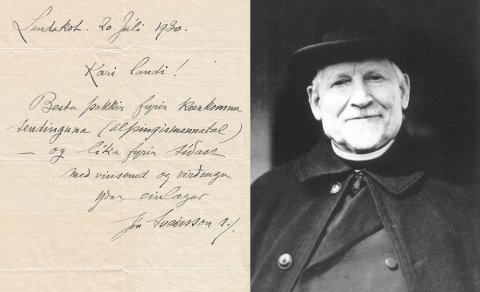 Landakot. 20 Júlí 1930.
Kæri landi!
Besta þakkir fyrir kærkomna
sendinguna (alþingismannatal)
– og líka fyrir síðast
með vinsemd og virðingu
yðar einlægur
Jón Sveinsson S.J.